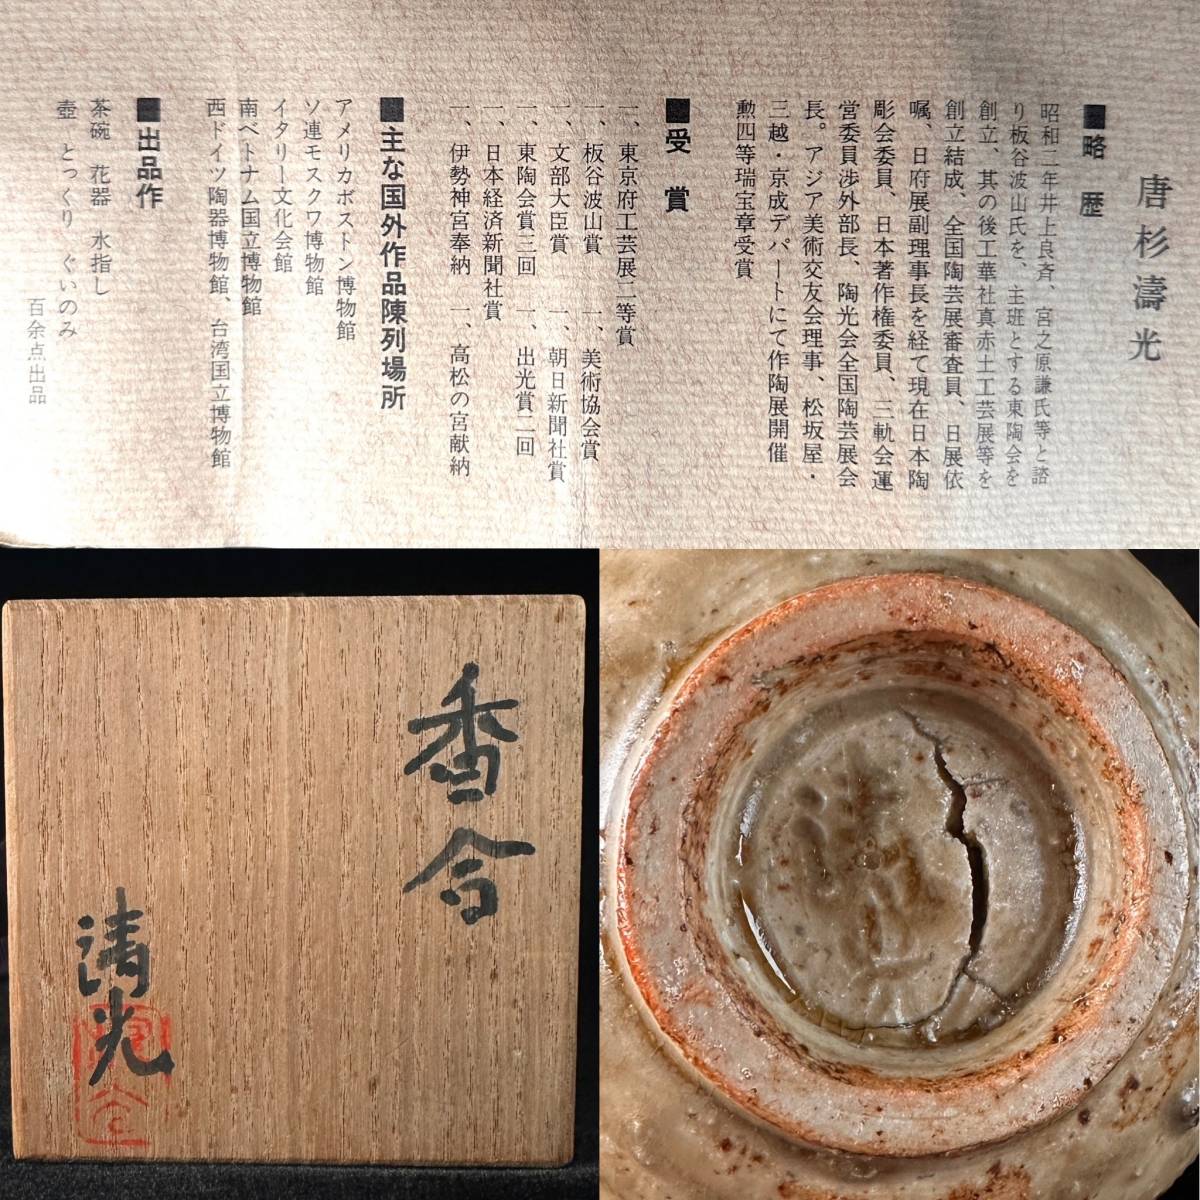 唐杉濤光
■略歴
昭和二年井上良斉、宮之原謙氏等と諮
り板谷波山氏を、主班とする東陶会を
創立、其の後工華社真赤土工芸展等を
創立結成、全国陶芸展審査員、日展依
嘱、日府展副理事長を経て現在日本陶
彫会委員、日本著作権委員、三軌会運
営委員渉外部長、陶光会全国陶芸展会
長。アジア美術交友会理事、松坂屋・
三越・京成デパートにて作陶展開催
勲四等瑞宝章受賞
■受賞
一、東京府工芸展二等賞
一、板谷波山賞 一、美術協会賞
一、文部大臣賞 一、朝日新聞社賞
一、東陶会賞三回 一、出光賞二回
一、日本経済新聞社賞
一、伊勢神宮奉納 一、高松の宮献納
■主な国外作品陳列場所
アメリカボストン博物館
ソ連モスクワ博物館
イタリー文化会館
南ベトナム国立博物館
西ドイツ陶器博物館、台湾国立博物館
■出品作
茶碗 花器 水指し
壺 とっくり ぐいのみ
百余点出品
香合
濤光